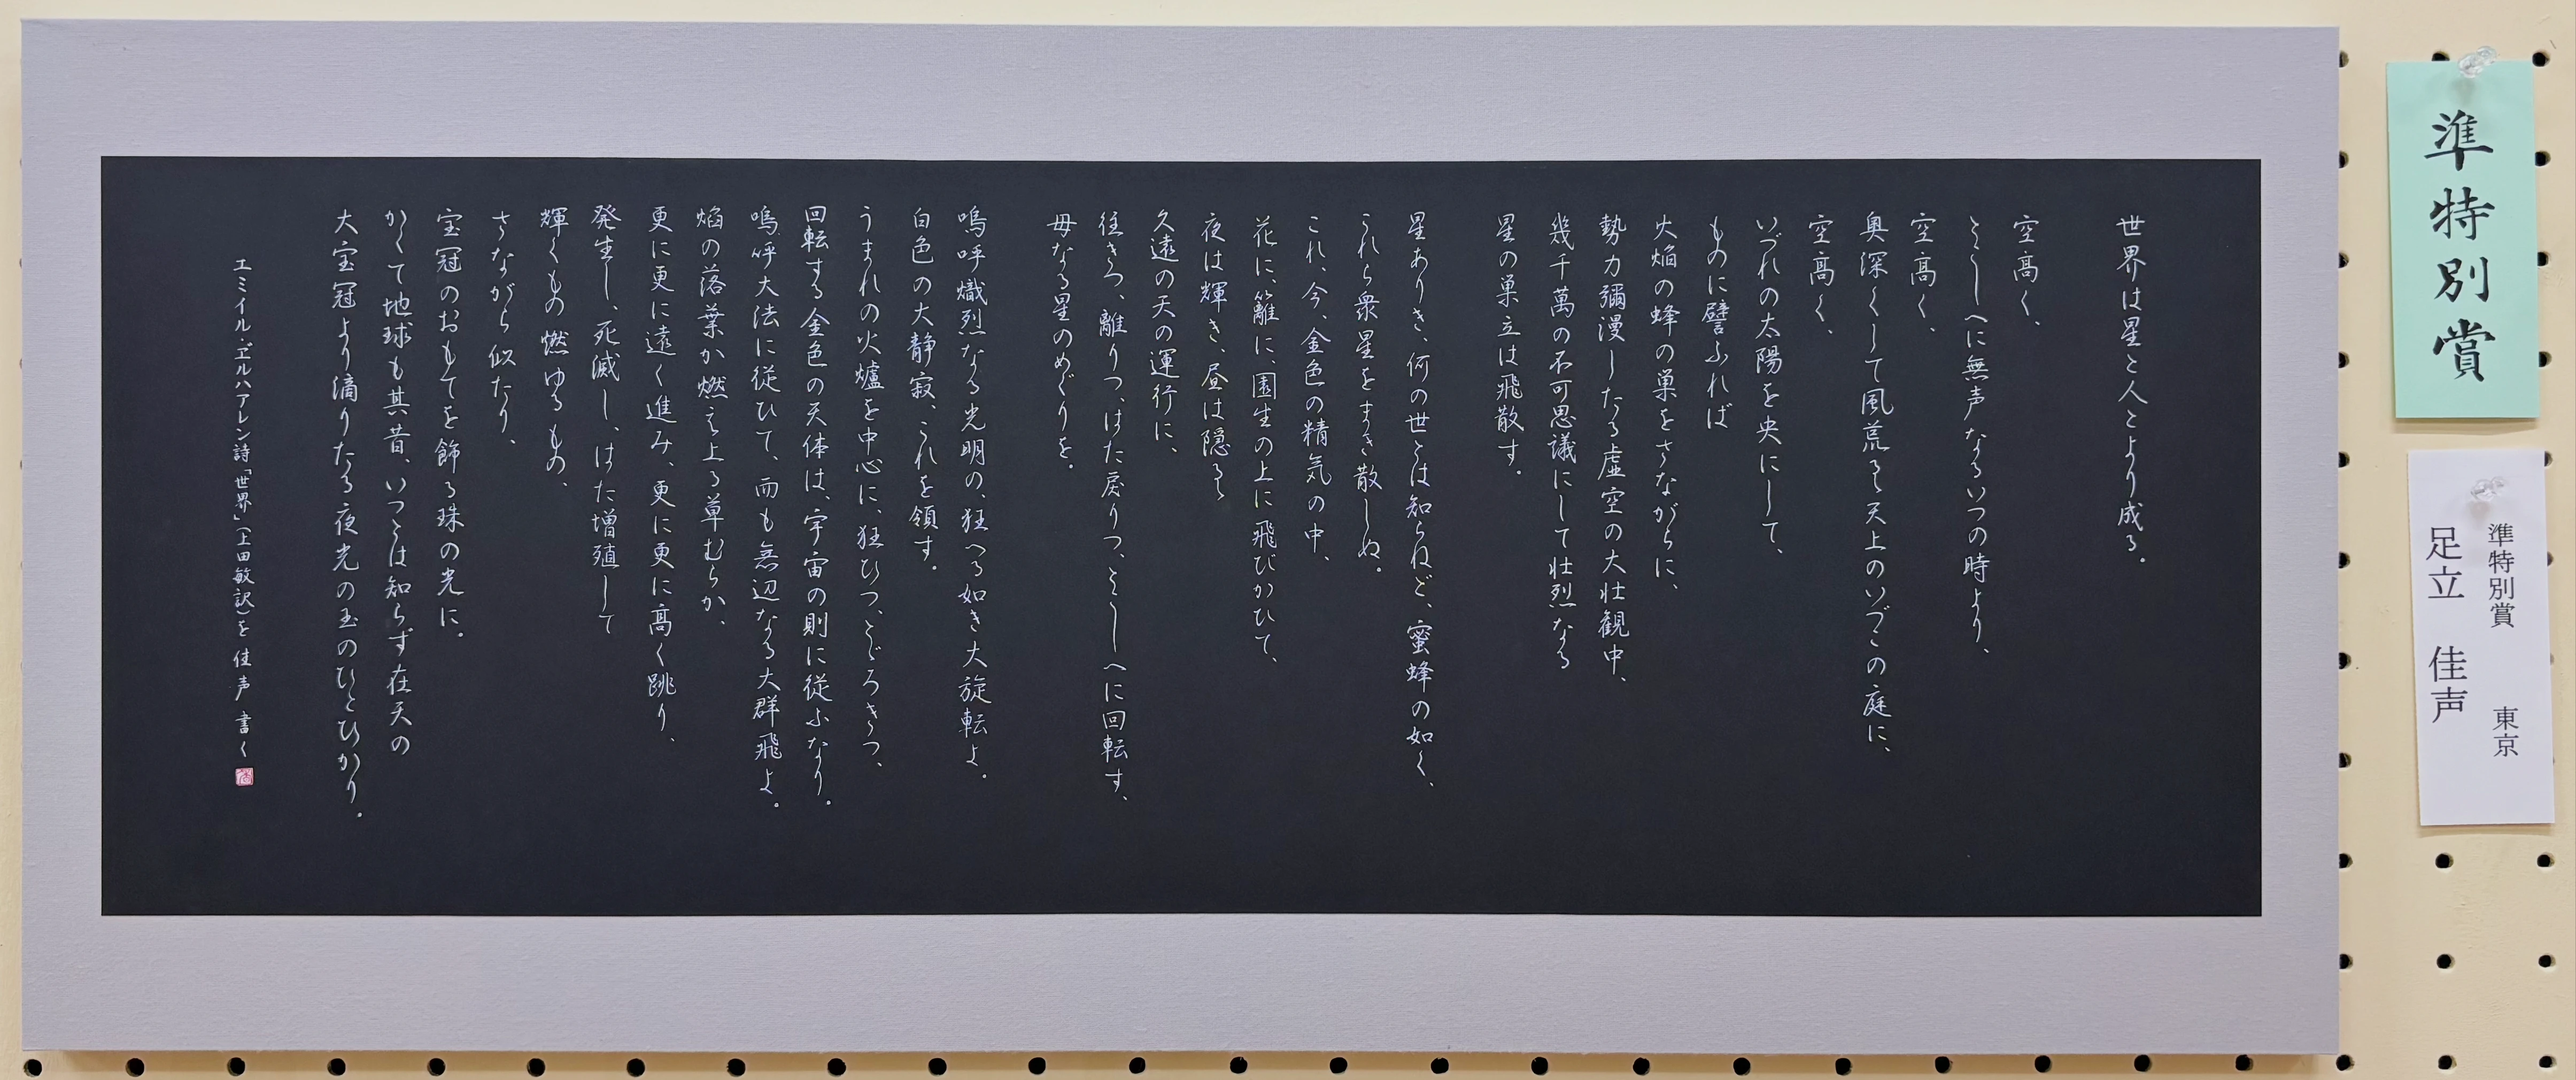 世界は星と人とより成る。
空高く、
とこしへに無声なるいつの時より、
空高く、
奥深くして風荒るゝ天上のいづこの庭に、
空高く、
いづれの太陽を央にして、
ものに譬ふれば
火焔の蜂の巣をさながらに、
勢力彌漫したる虚空の大壮観中、
幾千萬の不可思議にして壮烈なる
星の巣立は飛散す。
星ありき、何の世とは知らねど、蜜蜂の如く、
これら衆星をまき散しぬ。
これ、今、金色の精気の中、
花に、籬に、園生の上に飛びかひて、
夜は輝き、昼は隠るゝ
久遠の天の運行に、
往きつ、離りつ、はた戻りつ、とこしへに回転す、
母なる星のめぐりを。
嗚呼熾烈なる光明の、狂へる如き大旋転よ。
白色の大静寂、これを領す。
うまれの火爐を中心に、狂ひつ、とどろきつ、
回転する金色の天体は、宇宙の則に従ふなり。
嗚呼大法に従ひて、而も無辺なる大群飛よ。
焔の落葉か燃え上る草むらか、
更に更に遠く進み、更に更に高く跳り、
発生し、死滅し、はた増殖して
輝くもの燃ゆるもの、
さながら似たり、
宝冠のおもてを飾る珠の光に。
かくて地球も其昔、いつとは知らず在天の
大宝冠より滴りたる夜光の玉のひとひかり。
エミイル・ヹルハアレン詩「世界」(上田敏訳)を 佳声 書く
準特別賞
準特別賞 東京
足立 佳声